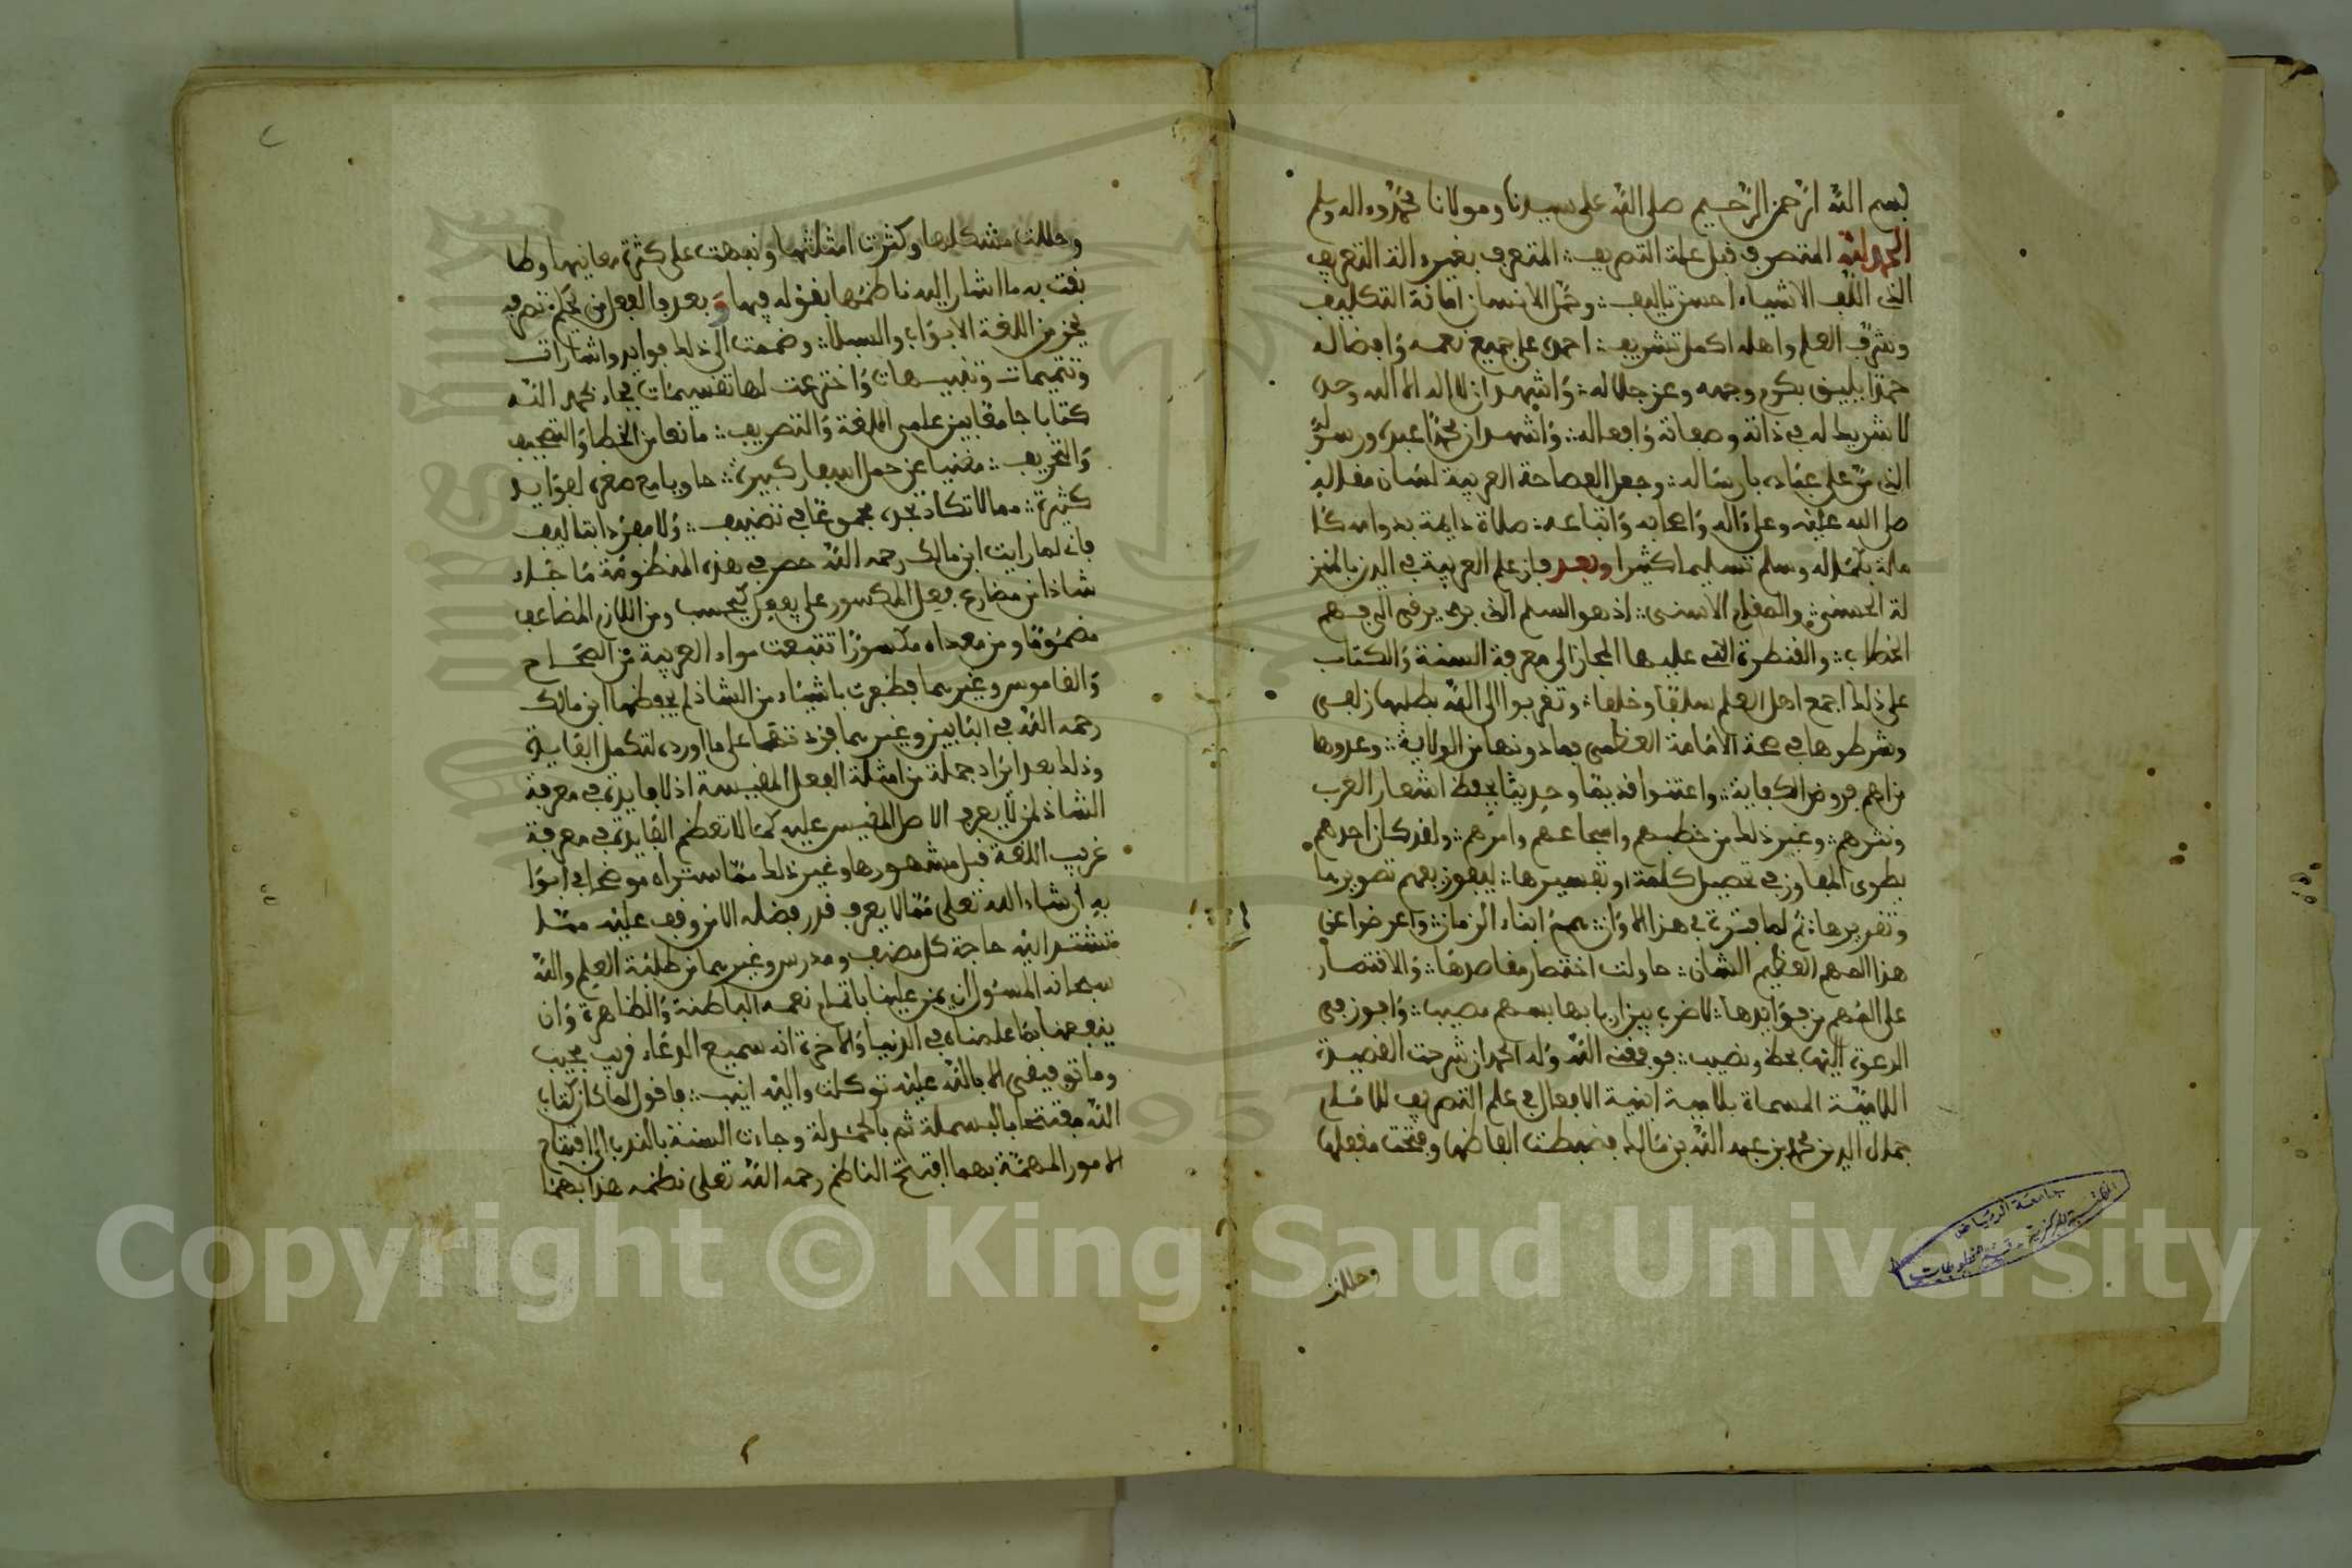 بسم الله الرحمن الرحيم صلى الله على سيدنا ومولانا محمد وءاله وسلم
الحمد لله المتصرف قبل علة التصريف ∴ المتعرف بغير ءالة التعريف
الذي الف الاشياء احسن تاليف ∴ وحمل الانسان امانة التكليف
وشرف العلم واهله اكمل تشريف ∴ احمده على جميع نعمه وافضاله
حمدا يليق بكرم وجهه وعز جلاله ∴ واشهد ان لا اله الا الله وحده
لا شريك له في ذاته وصفاته وافعاله ∴ واشهد ان محمدا عبده ورسوله
الذي من على عباده بارساله ∴ وجعل الفصاحة العربية لسان مقاله
صلى الله عليه وعلى ءاله واصحابه واتباعه ∴ صلاة دايمة بدوام
وسلم تسليما كثيرا وبعد فان علم العربية في الدين بالمنز
لة الحسنى ∴ والمقام الاسنى ∴ اذ هو السلم الذي به يرقى الى فهم
الخطاب ∴ والقنطرة التي عليها المجاز الى معرفة السنة والكتاب
على ذلك اجمع اهل العلم سلفا وخلفا ∴ وتقربوا الى الله بطلبها زلفى
وشرطوها في صحة الامامة العظمى فما دونها من الولاية ∴ وعدوها
من اهم فروض الكفاية ∴ واعتنوا قديما وحديثا بحفظ اشعار العرب
ونثرهم ∴ وغير ذلك من خطبهم واسجاعهم وامرهم ∴ ولقد كان احدهم
يطوي المفاوز في تحصيل كلمة او تفسيرها ∴ ليفوز بفهم تصويرها
وتقريرها ∴ ثم لما فترت في هذا الاوان ∴ همم ابناء الزمان ∴ واعرضوا عن
هذا المهم العظيم الشان ∴ حاولت اختصار مقاصدها ∴ والاقتصار
على المهم من فوايدها ∴ لاضرب بين اربابها بسهم مصيب ∴ وافوز في
الدعوة اليها بحظ ونصيب ∴ فوفقني الله وله الحمد ان شرحت القصيدة
اللامية المسماة بلامية ابنية الافعال في علم التصريف للامام
جمال الدين محمد بن عبد الله بن مالك فضبطت الفاظها وفتحت مقفلها
وحللت
جامعة الرياض
المكتبة المركزية - قسم المخطوطات
وحللت مشكلها وكثرت امثلتها ونبهت على كثرة معانيها وطا
بقت به ما اشار اليه ناظمها بقوله فيها وبعد فالفعل من يحكم تصرفه
يحز من اللغة الابواب والسبلا ∴ وضممت الى ذلك فوايد واشارات
وتتميمات وتنبيهات واخترعت لها تقسيمات فجاء بحمد الله
كتابا جامعا بين علمي اللغة والتصريف ∴ مانعا من الخطا والتصحيف
والتحريف ∴ مغنيا عن حمل اسفار كبيرة ∴ حاويا مع صغره لفوايد
كثيرة ∴ مما لا تكاد تجده مجموعا في تصنيف ∴ ولا مفردا بتاليف
فاني لما رايت ابن مالك رحمه الله حصر في هذه المنظومة ما جاء
شاذا من مضارع فعل المكسور على يفعل كيحسب ومن اللازم المضاعف
مضموما ومن معداه مكسورا تتبعت مواد العربية من الصحاح
والقاموس وغيرهما فظفرت باشياء من الشاذ لم يحفظها ابن مالك
رحمه الله في البابين وغيرهما فزدتها على ما اورده لتكمل الفايدة
وذلك بعد ايراد جملة من امثلة الفعل المقيسة اذ لا فايدة في معرفة
الشاذ لمن لا يعرف الاصل المقيس عليه كما لا تعظم الفايدة في معرفة
غريب اللغة قبل مشهورها وغير ذلك مما ستراه موضحا في ابوا
به ان شاء الله تعلى مما لا يعرف قدر فضله الا من وقف عليه مما
تشتد اليه حاجة كل مصنف ومدرس وغيرهما من طلبة العلم والله
سبحانه المسئول ان يمن علينا باتمام نعمه الباطنة والظاهرة وان
ينفعنا بما علمناه في الدنيا والاخرة انه سميع الدعاء قريب مجيب
وما توفيقي الا بالله عليه توكلت واليه انيب ∴ فاقول لما كان كتاب
الله مفتتحا بالبسملة ثم بالحمدلة وجاءت السنة بالندب الى افتتاح
الامور المهمة بهما افتتح الناظم رحمه الله تعلى نظمه هذا بهما
Copyright © King Saud University
1957